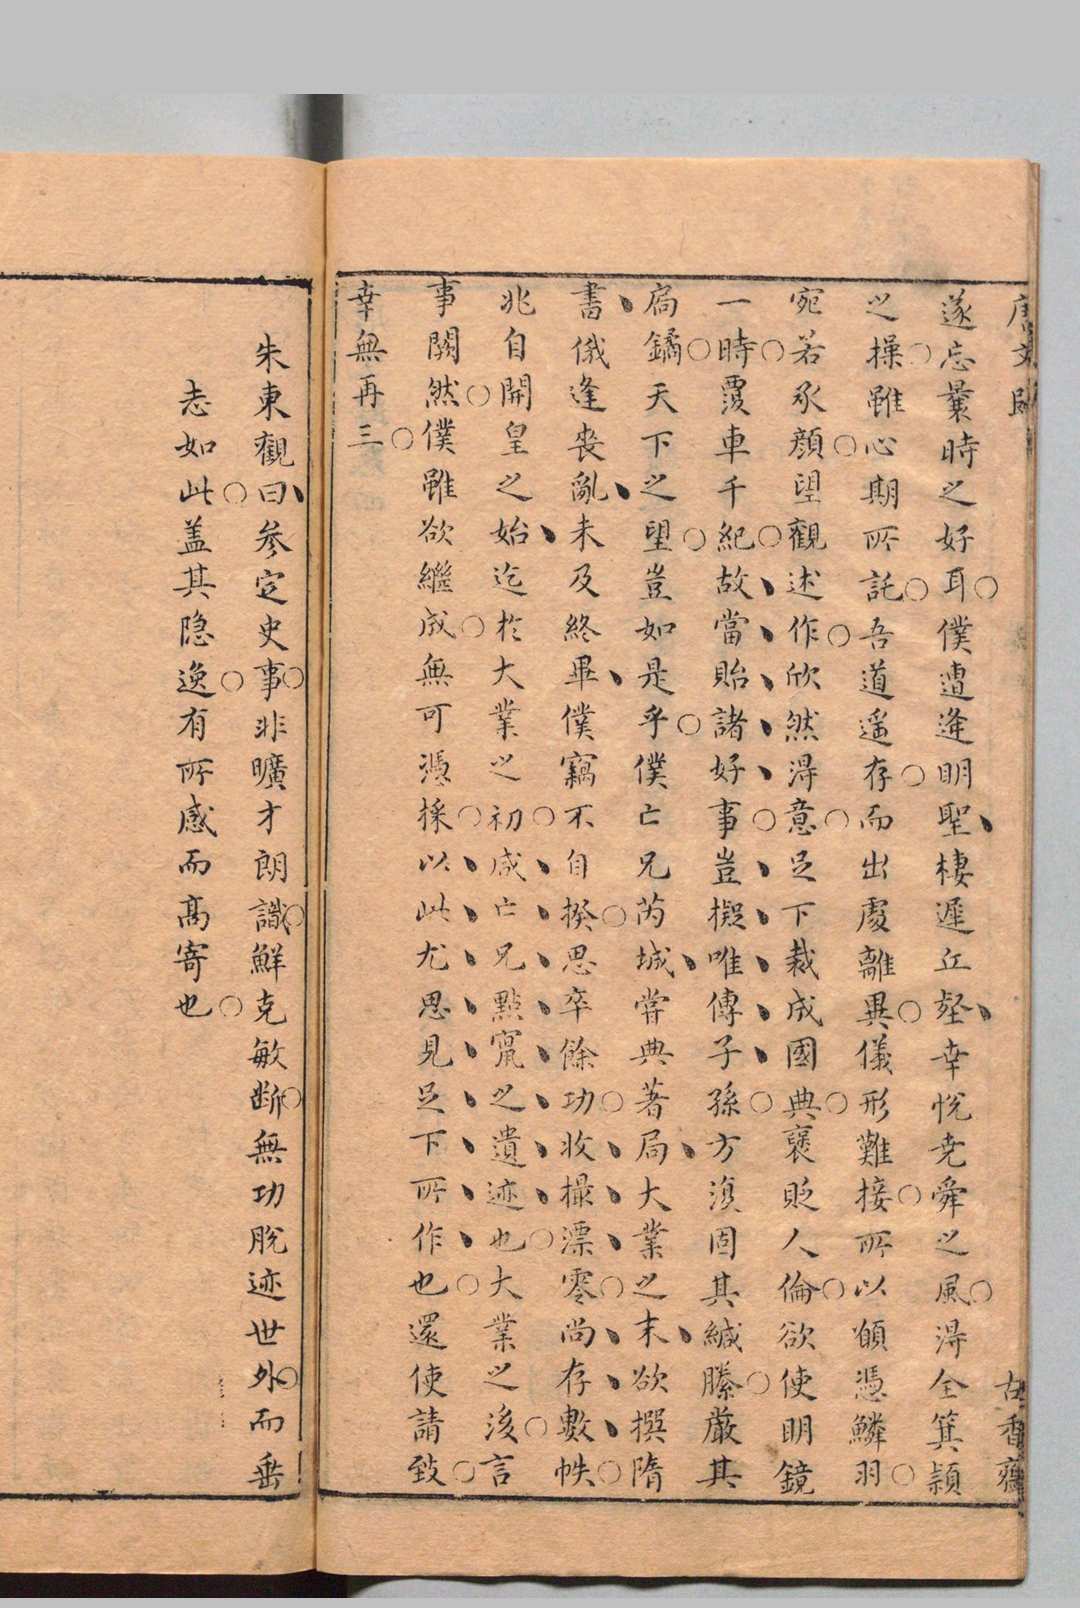 遂忘曩時之好耳僕遭逢明聖棲遲丘壑幸悅堯舜之風淂全箕潁
之操雖心期所託吾道遥存而出處離異儀形難接所以傾憑鱗羽
宛若承顏望觀述作欣然淂意足下裁成國典襃貶人倫欲使明鏡
一時覆車千紀故當貽諸好事豈擬唯傳子孫方湏固其緘縢嚴其
扃鐍天下之望豈如是乎僕亡兄芮城嘗典著局大業之末欲撰隋
書俄逢喪亂未及終畢僕竊不自揆思卒餘功收撮漂零尚存數帙
兆自開皇之始迄於大業之初咸亡兄點竄之遺迹也大業之後言
事闕然僕雖欲繼成無可憑採以此尤思見足下所作也還使請致
幸無再三
朱東觀曰參定史事非曠才朗識鮮克敏斷無功脫迹世外而垂
志如此盖其隐逸有所感而高寄也
古香齋